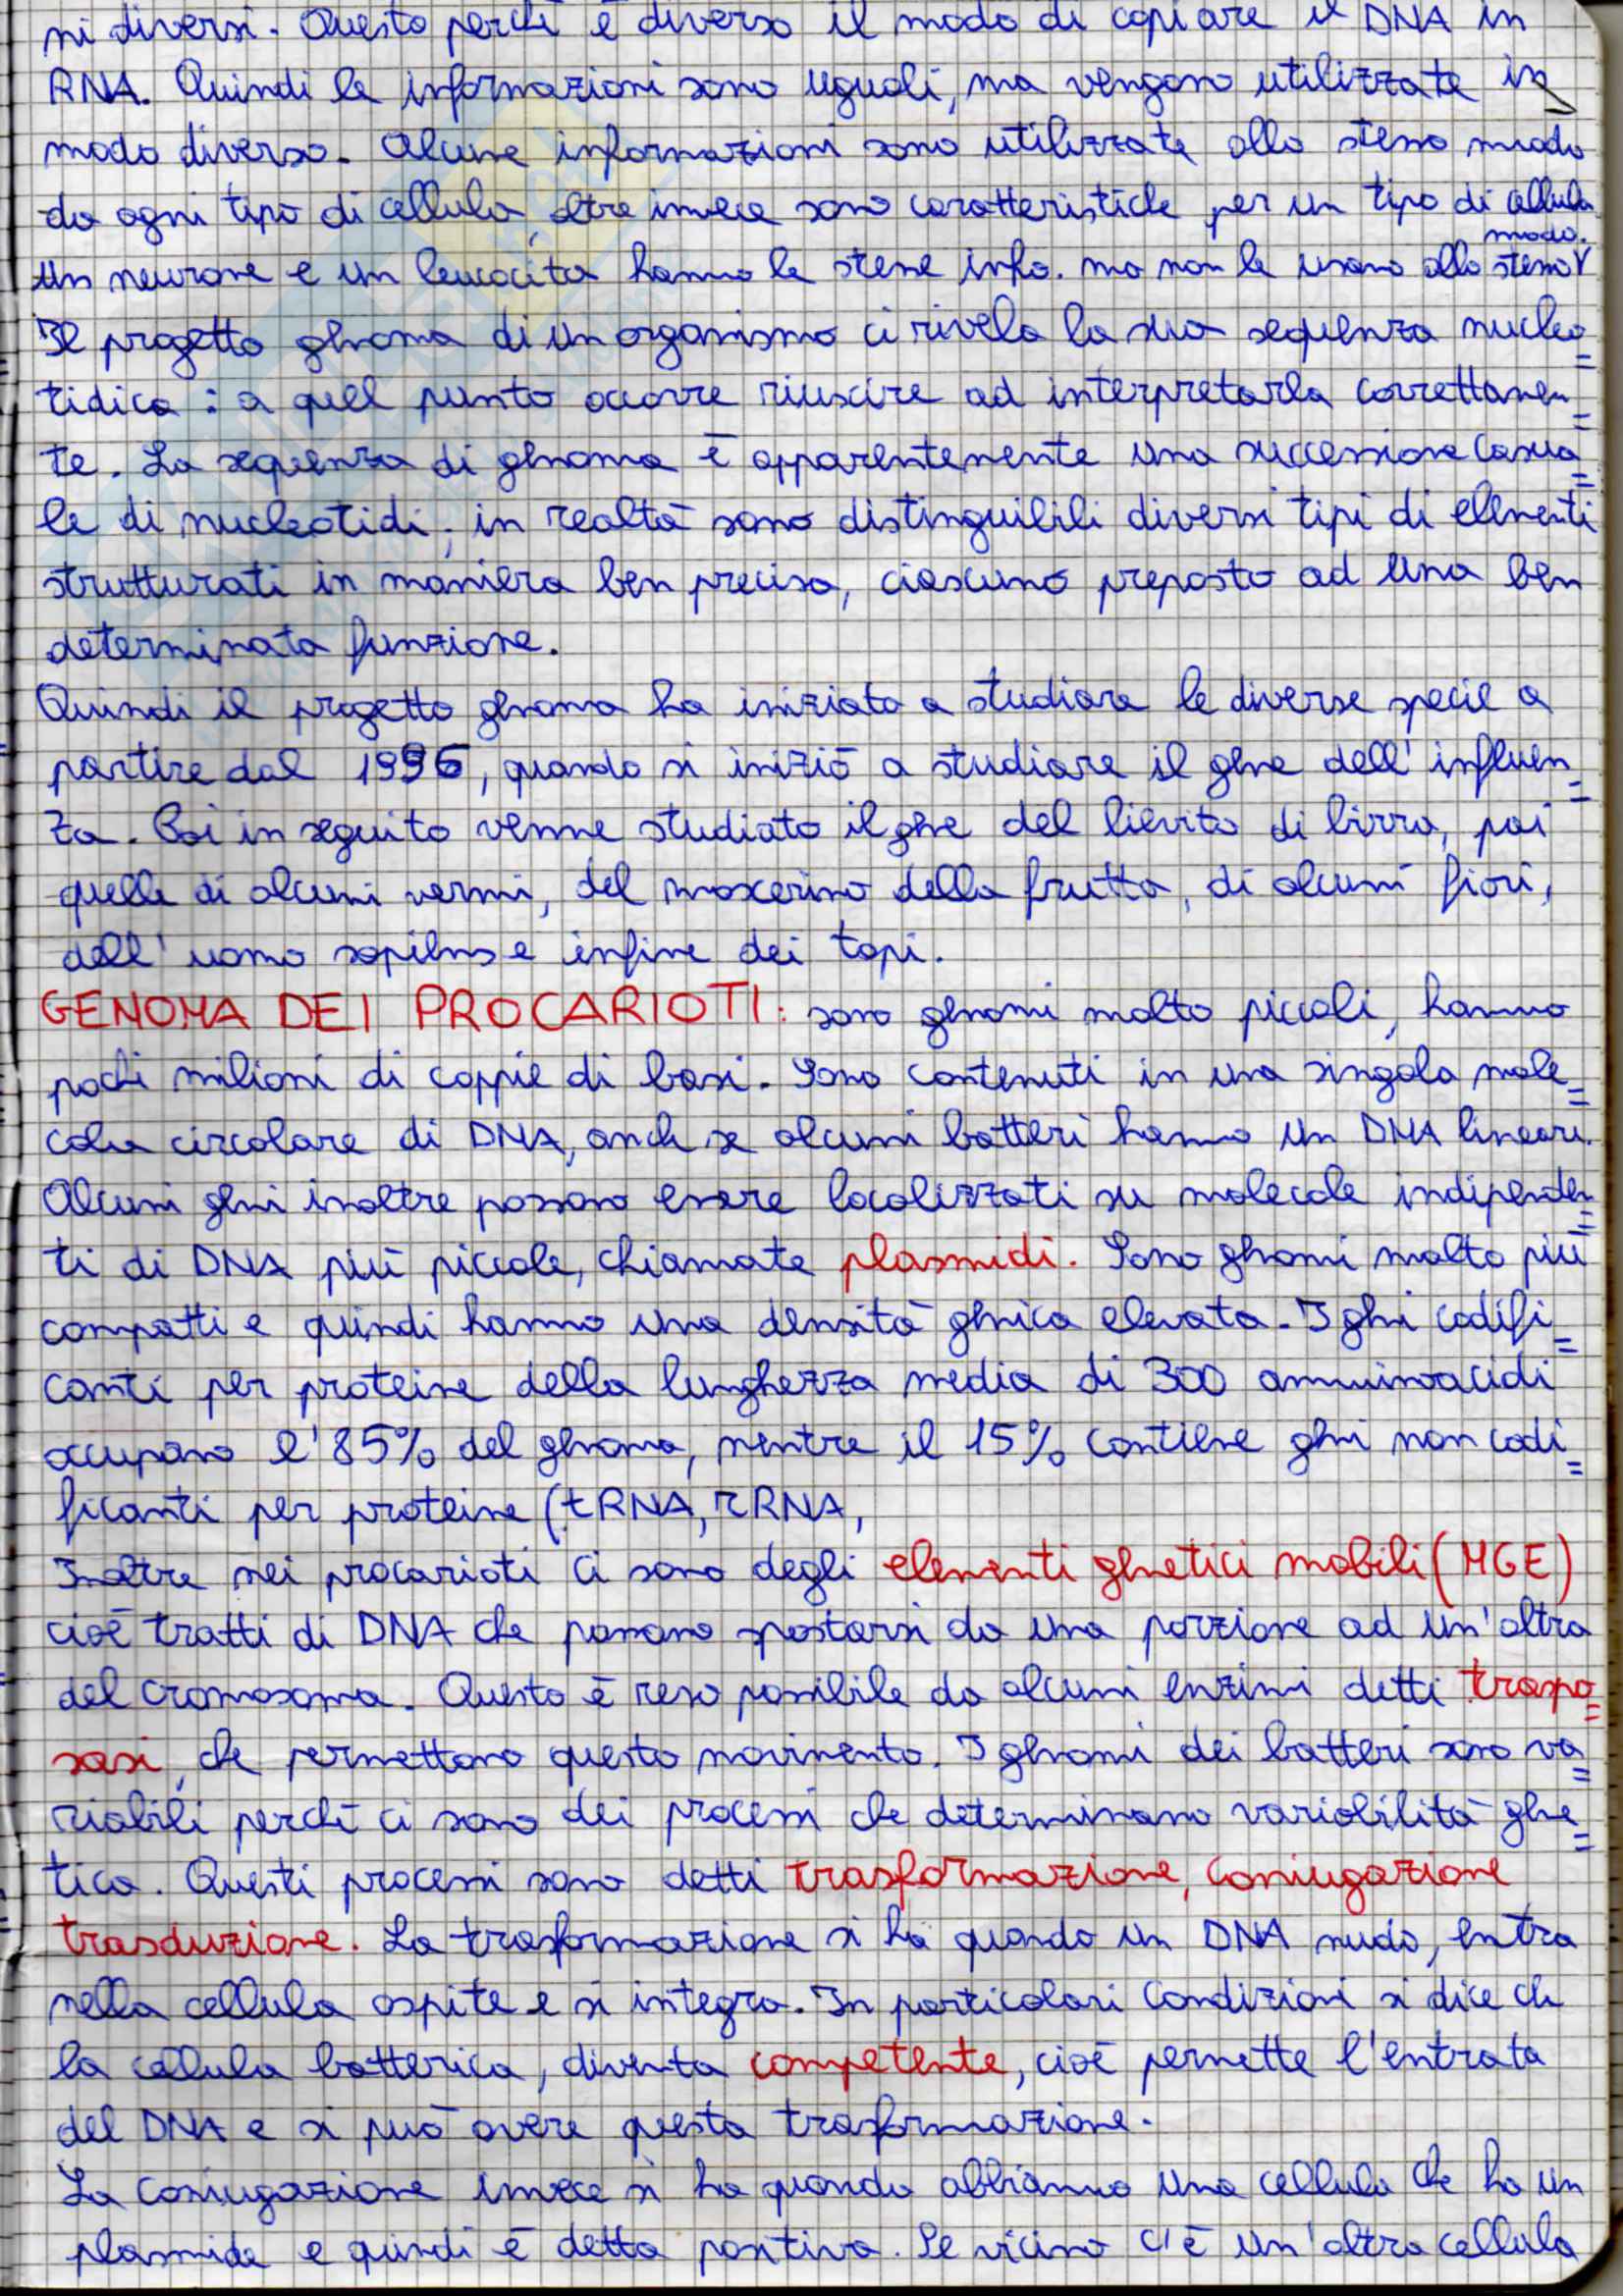 ni diversi. Questo perchè è diverso il modo di copiare il DNA in
RNA. Quindi le informazioni sono uguali, ma vengono utilizzate in
modo diverso. Alcune informazioni sono utilizzate allo stesso modo
da ogni tipo di cellula, altre invece sono caratteristiche per un tipo di cellula.
Un neurone e un leucocita hanno le stesse info. ma non le usano allo stesso modo.
Il progetto genoma di un organismo ci rivela la sua sequenza nucleo=
tidica: a quel punto occorre riuscire ad interpretarla correttamen=
te. La sequenza di genoma è apparentemente una successione casua=
le di nucleotidi; in realtà sono distinguibili diversi tipi di elementi
strutturati in maniera ben precisa, ciascuno preposto ad una ben
determinata funzione.
Quindi il progetto genoma ha iniziato a studiare le diverse specie a
partire dal 1996, quando si iniziò a studiare il gene dell'influen=
za. Poi in seguito venne studiato il gene del lievito di birra, poi
quelle di alcuni vermi, del moscerino della frutta, di alcuni fiori,
dell'uomo sapiens e infine dei topi.
GENOMA DEI PROCARIOTI: sono genomi molto piccoli, hanno
pochi milioni di coppie di basi. Sono contenuti in una singola mole=
cola circolare di DNA, anche se alcuni batteri hanno un DNA lineare.
Alcuni geni inoltre possono essere localizzati su molecole indipenden=
ti di DNA più piccole, chiamate plasmidi. Sono genomi molto più
compatti e quindi hanno una densità genica elevata. I geni codifi=
canti per proteine della lunghezza media di 300 amminoacidi
occupano l'85% del genoma, mentre il 15% contiene geni non codi=
ficanti per proteine (tRNA, rRNA,
Inoltre nei procarioti ci sono degli elementi genetici mobili (MGE)
cioè tratti di DNA che possono spostarsi da una porzione ad un'altra
del cromosoma. Questo è reso possibile da alcuni enzimi detti traspo=
sasi, che permettono questo movimento. I genomi dei batteri sono va=
riabili perchè ci sono dei processi che determinano variabilità gene=
tica. Questi processi sono detti trasformazione, coniugazione
trasduzione. La trasformazione si ha quando un DNA nudo, entra
nella cellula ospite e si integra. In particolari condizioni si dice che
la cellula batterica, diventa competente, cioè permette l'entrata
del DNA e si può avere questa trasformazione.
La coniugazione invece si ha quando abbiamo una cellula che ha un
plasmide e quindi è detta positiva. Se vicino c'è un'altra cellula